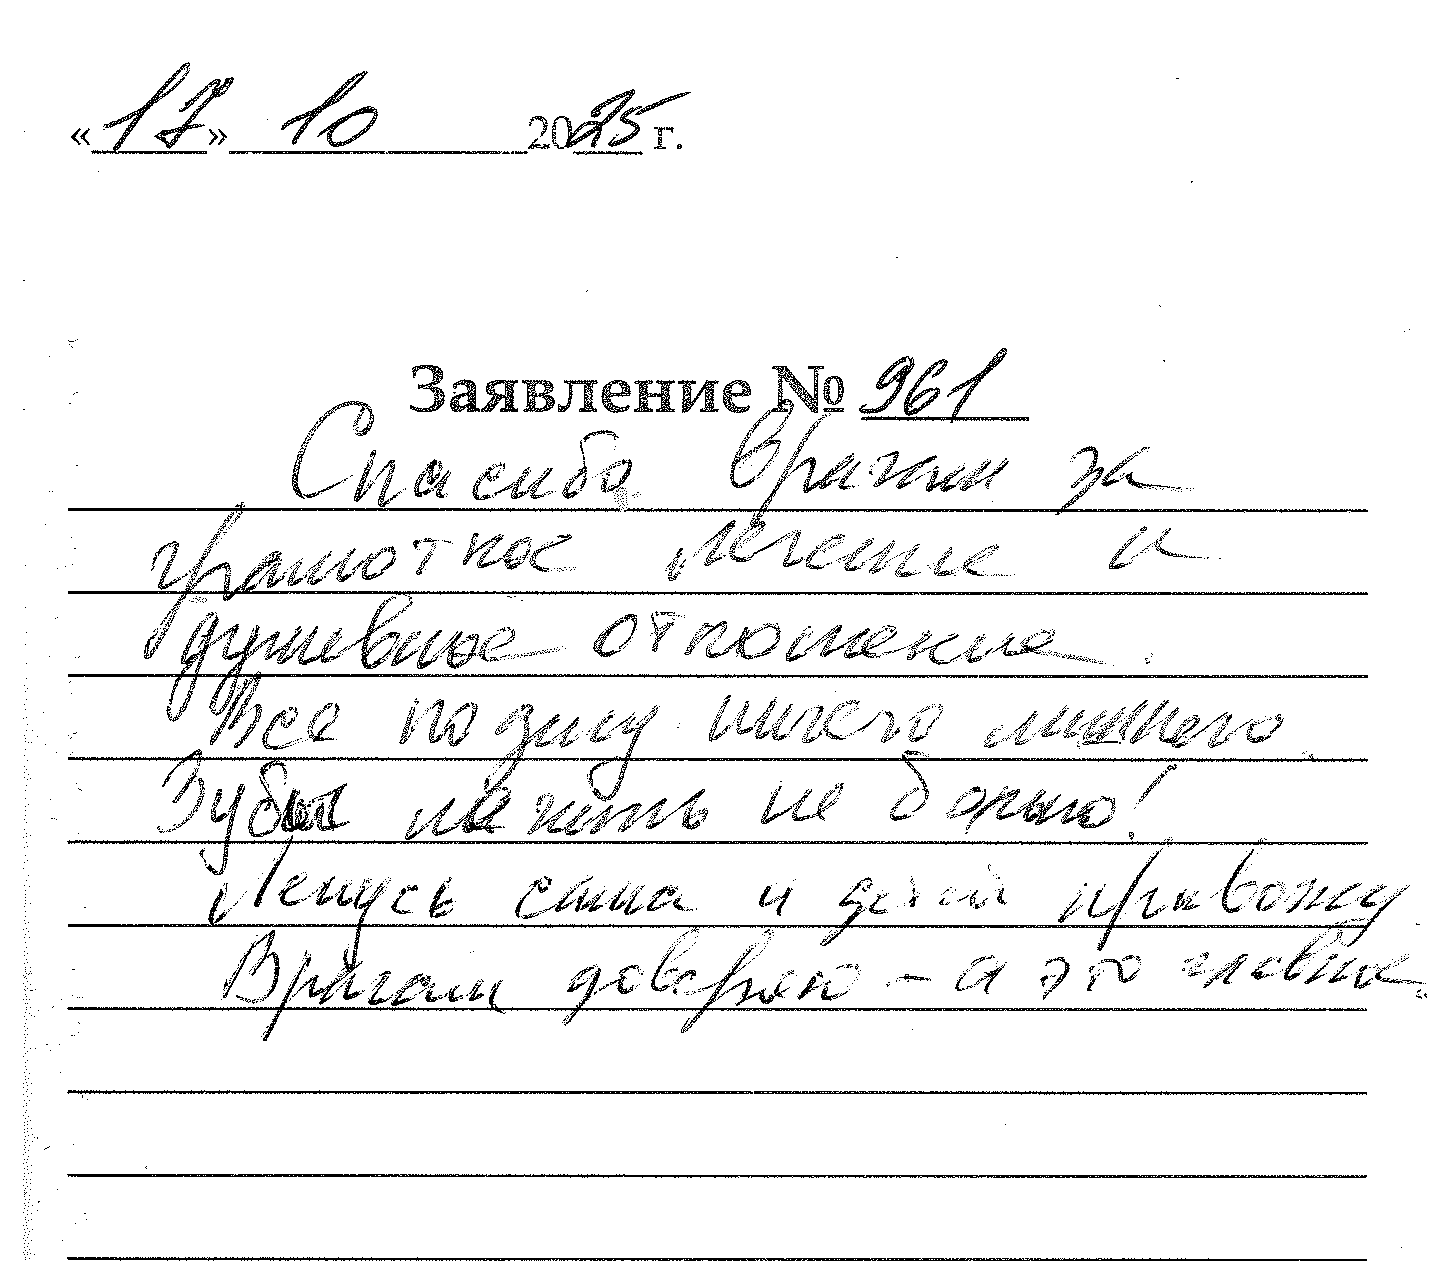 «17» 10 2025 г.
Заявление № 961
Спасибо врачам за
грамотное лечение и
душевное отношение.
Все по делу ничего лишнего.
Зубы лечить не больно!
Лечусь сама и детей привожу
Врачам доверяю - а это главное.